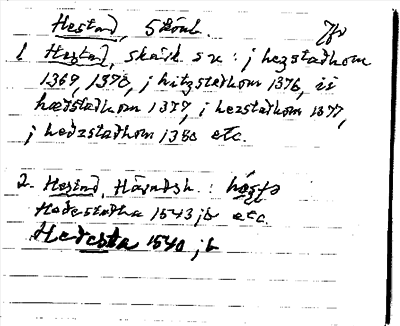 Hestad, Skönb.
1 Hestad, Skönb. sn : j hezstadhom
1369, 1370, j hitzstadhom 1376, is
hæzstadhom 1377, i hezstadhom 1377,
j hedzstadhom 1380 etc.
2. Hestad, Härndsh. :
Hedestadha 1543 jb etc.
Hedesta 1540 jb